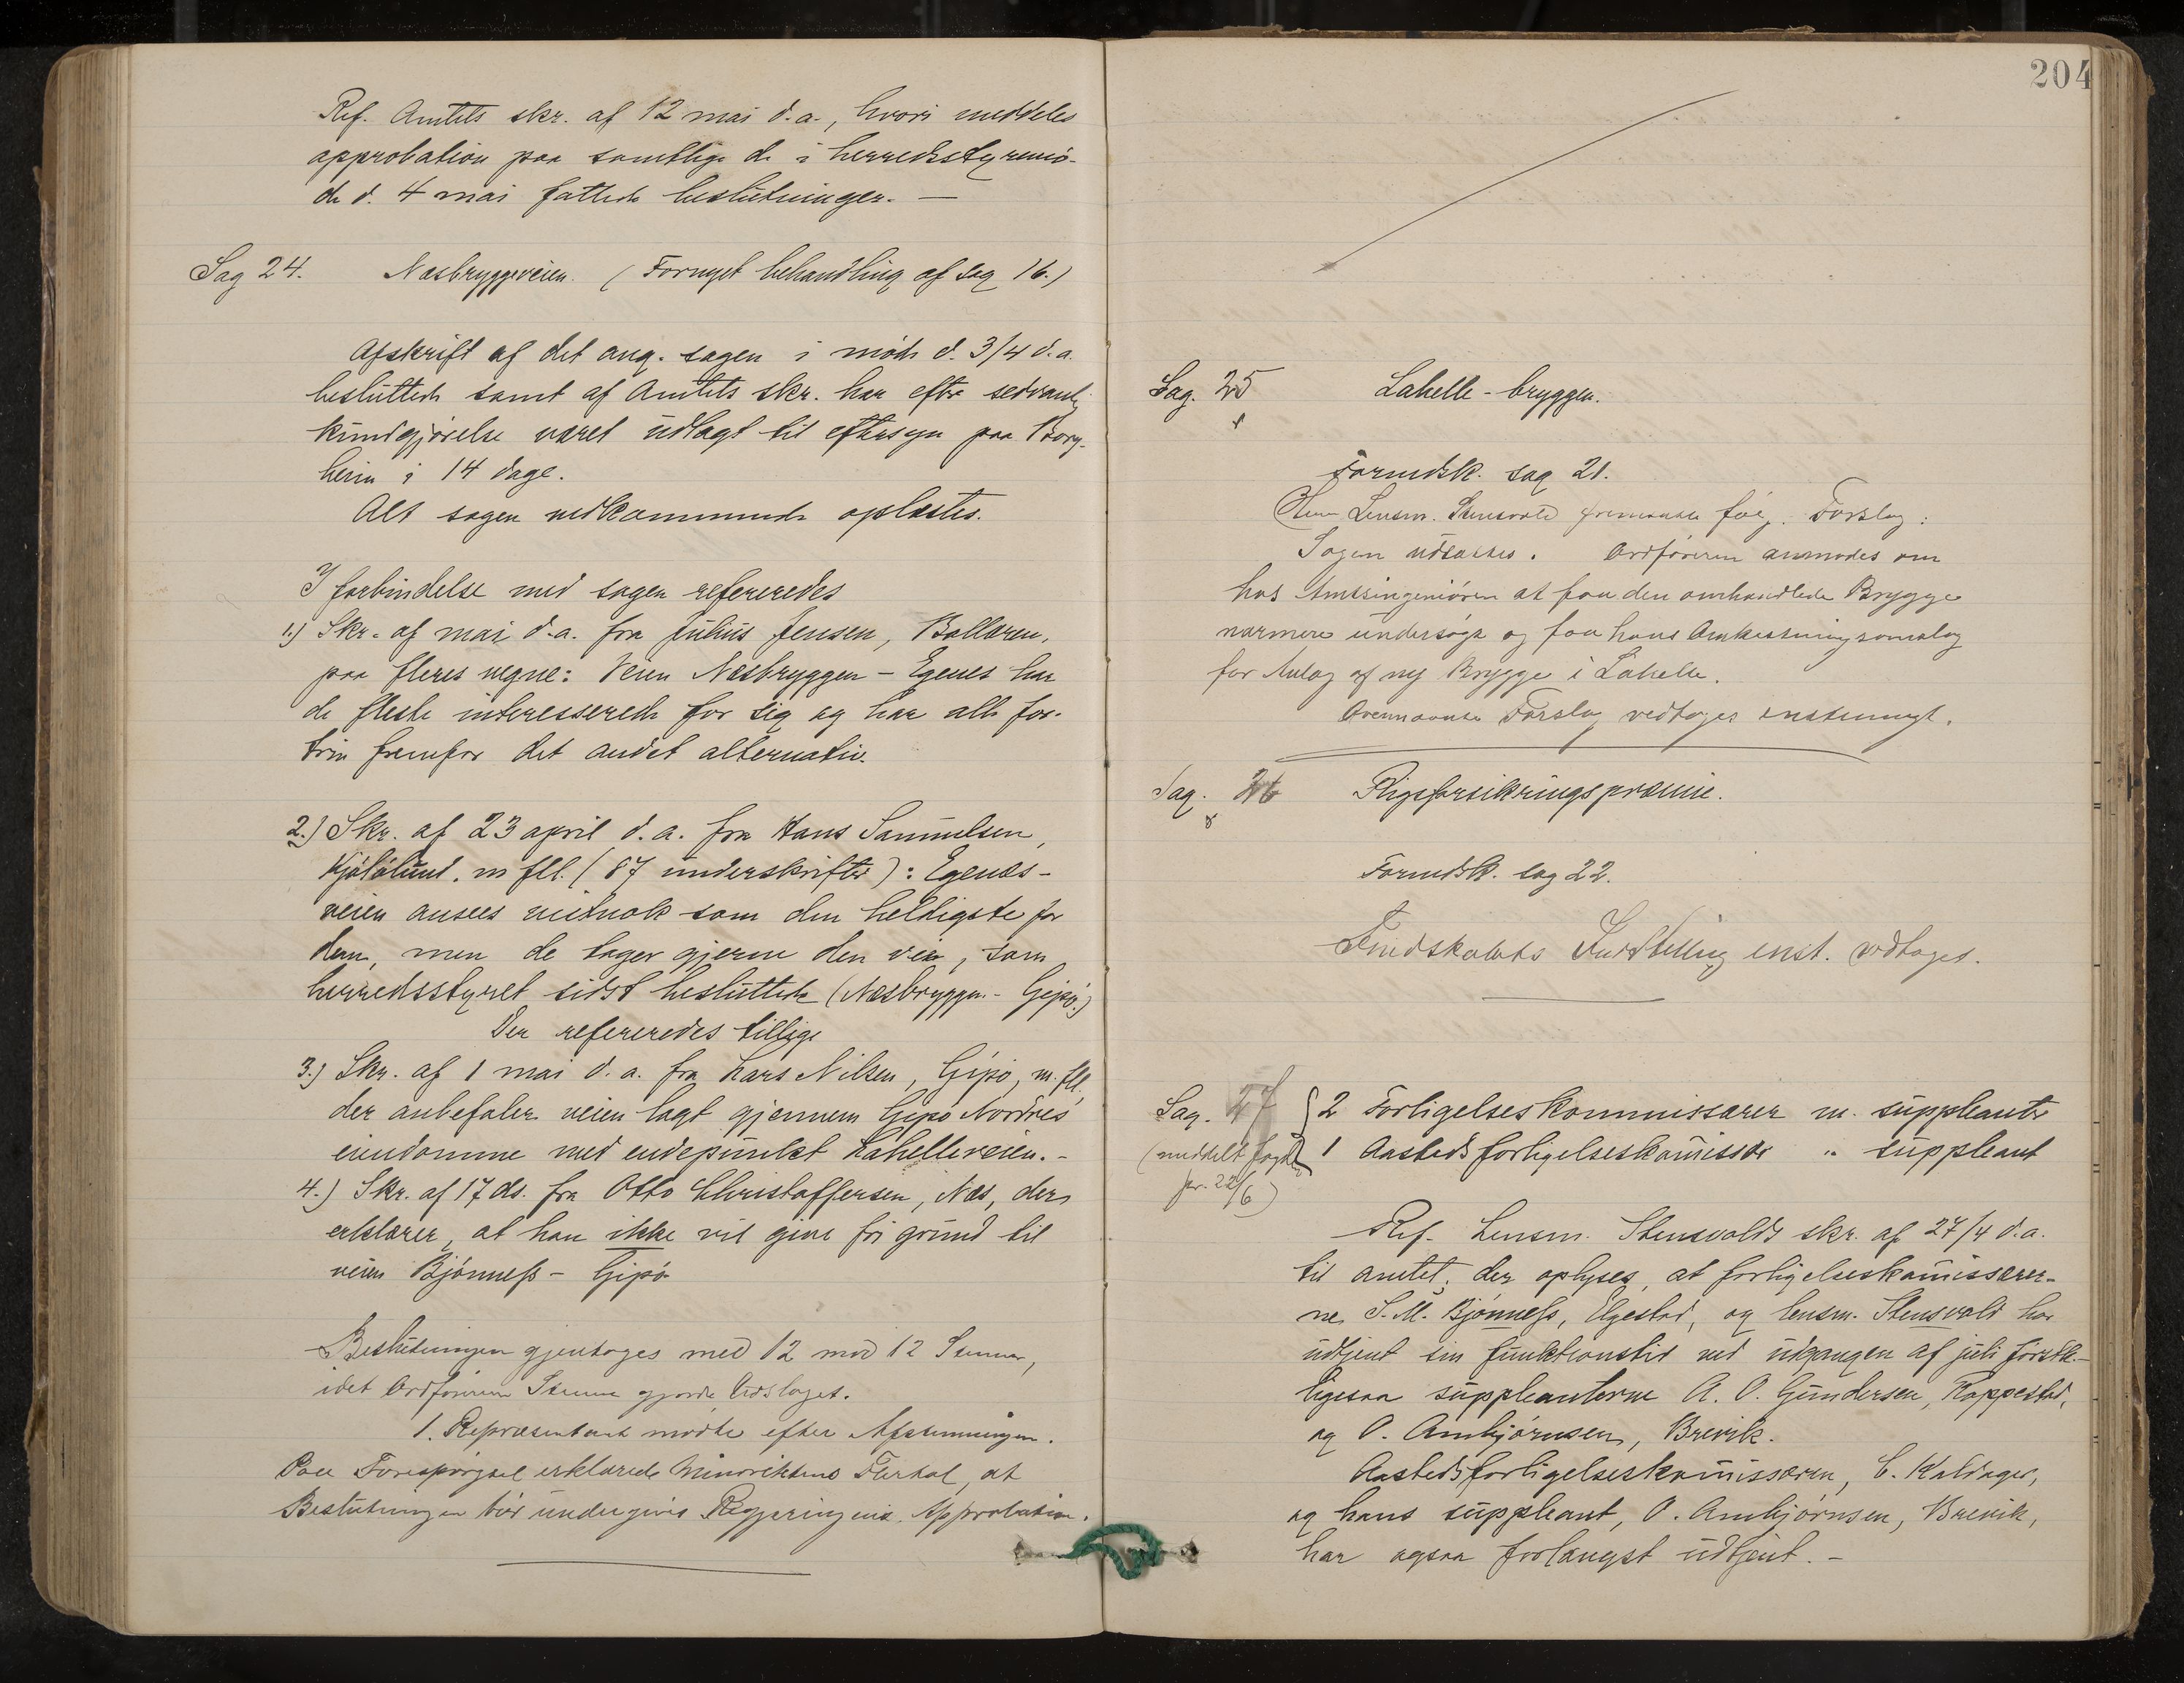 Ref. Amtets skr. af 12 mai d.a., hvori meddeles
approbation paa samtlige de i herredsstyremö-
de d. 4 mai fattede beslutninger. —
Sag 24. Næsbryggeveien. (Fornyet behandling af sag 16.)
Afskrift af det ang. sagen i möde d. 3/4 d.a.
besluttede samt af Amtets skr. har efter sedvanlig
kundgjörelse været udlagt til eftersyn paa Borg-
heim i 14 dage.
Alt sagen vedkommende oplæstes.
I forbindelse med sagen refereredes
1.) Skr. af mai d.a. fra Julius Jensen, Bollæren,
paa fleres vegne: Veien Næsbryggen – Egenes har
de fleste interesserede for sig og har alle for-
trin fremfor det andet alternativ.
2.) Skr. af 23 april d.a. fra Hans Samuelsen,
Kjölölund. m fll. (87 underskrifter): Egenæs-
veien ansees vistnok som den heldigste for
dem, men de tager gjerne den vei, som
herredsstyret sidst besluttede (Næsbryggen - Gipö.)
Der refereredes tillige
3.) Skr. af 1 mai d.a. fra Lars Nilsen, Gipö, m. fll.
der anbefaler veien lagt gjennem Gipö Nordres
eiendomme med endepunkt Lahelleveien. –
4.) Skr. af 17 ds. fra Otto Christoffersen, Næs, der
erklærer, at han ikke vil give fri grund til
veien Bjönness – Gipö
Beslutningen gjentoges med 12 mod 12 Stemmer,
idet Ordförerens Stemme gjorde Udslaget.
1. Repræsentant mödte efter Afstemningen.
Paa Forespörgsel erklærede Minoritetens Flertal, at
Beslutningen bör undergives Regjeringens Approbation.
204
Sag. 25 Lahelle - bryggen.
Formdsk. sag 21.
Herr Lensm. Stensvold fremsatte fölg. Forslag:
Sagen udsættes. Ordföreren anmodes om
hos Amtsingeniören at faa den omhandlede Brygge
nærmere undersögt og faa hans Omkostningsoverslag
for Anlæg af ny Brygge i Lahelle.
Ovennævnte Forslag vedtoges enstemmigt.
Sag. 26 Pligeforsikringspræmie.
Formdsk. sag 22.
Fmdskabets Indstilling enst. vedtoges.
Sag. 27 2 Forligelseskommissærer m. suppleanter
(meddelt fogden 1 Aastedsforligelseskomissær " suppleant
pr. 22/6)
Ref. Lensm. Stensvolds skr. af 27/4 d.a.
til amtet; der oplyses, at forligelseskomissærer-
ne, S.M. Bjönness, Elgestad, og lensm. Stensvold har
udtjent sin funktionstid ved udgangen af juli förstk.–
ligesaa suppleanterne A. O. Gundersen, Roppestad,
og O. Ambjörnsen, Brevik.
Aastedsforligelseskomissæren, C. Kaldager,
og hans suppleant, O. Ambjörnsen, Brevik,
har ogsaa forlængst udtjent. –